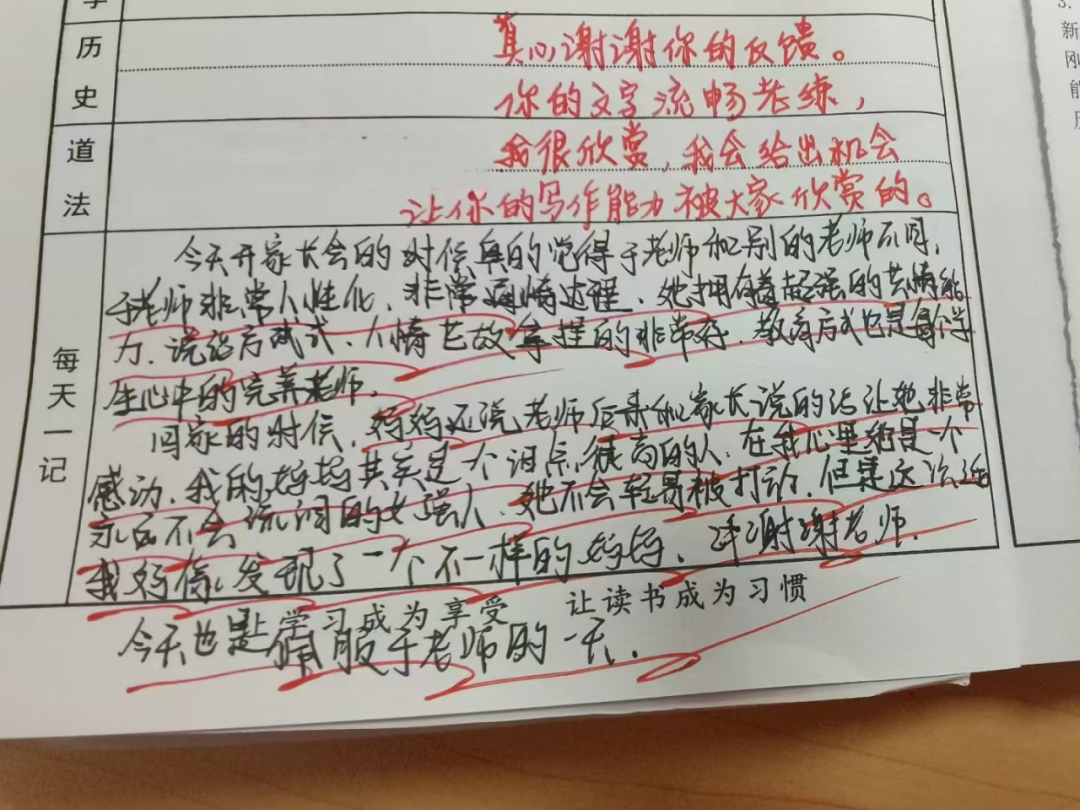 学
历史
真心谢谢你的反馈。
你的文字流畅老练，
道法
我很欣赏，我会给出机会
让你的写作能力被大家欣赏的。
每天一记
今天开家长会的时候真的觉得于老师和别的老师不同，
于老师非常人性化，非常通情达理，她拥有着超强的共情能
力，说话方式，人情世故拿捏的非常好，教育方式也是每个学
生心中的完美老师。
回家的时候，妈妈还说老师后来和家长说的话让她非常
感动，我的妈妈其实是个泪点很高的人，在我心里她是一个
永远不会流泪的女强人，她不会轻易被打动，但是这次
我发现了一个不一样的妈妈，谢谢老师。
让学习成为享受 让读书成为习惯
今天也是佩服于老师的一天。
3.
新
刚
能